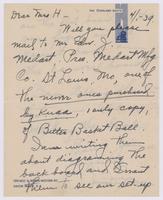 THE CLEVELAND HOTEL
4/1-39
Dear Mrs H-
Will you please
mail to Mr
Medart, Pres. Medart Mfg
Co. St Louis, Mo, one of
the never ones purchased
by
copy,
of Better Basket Ball.
I am writing them
about diagraming the
back board and I want
them to see our set-up